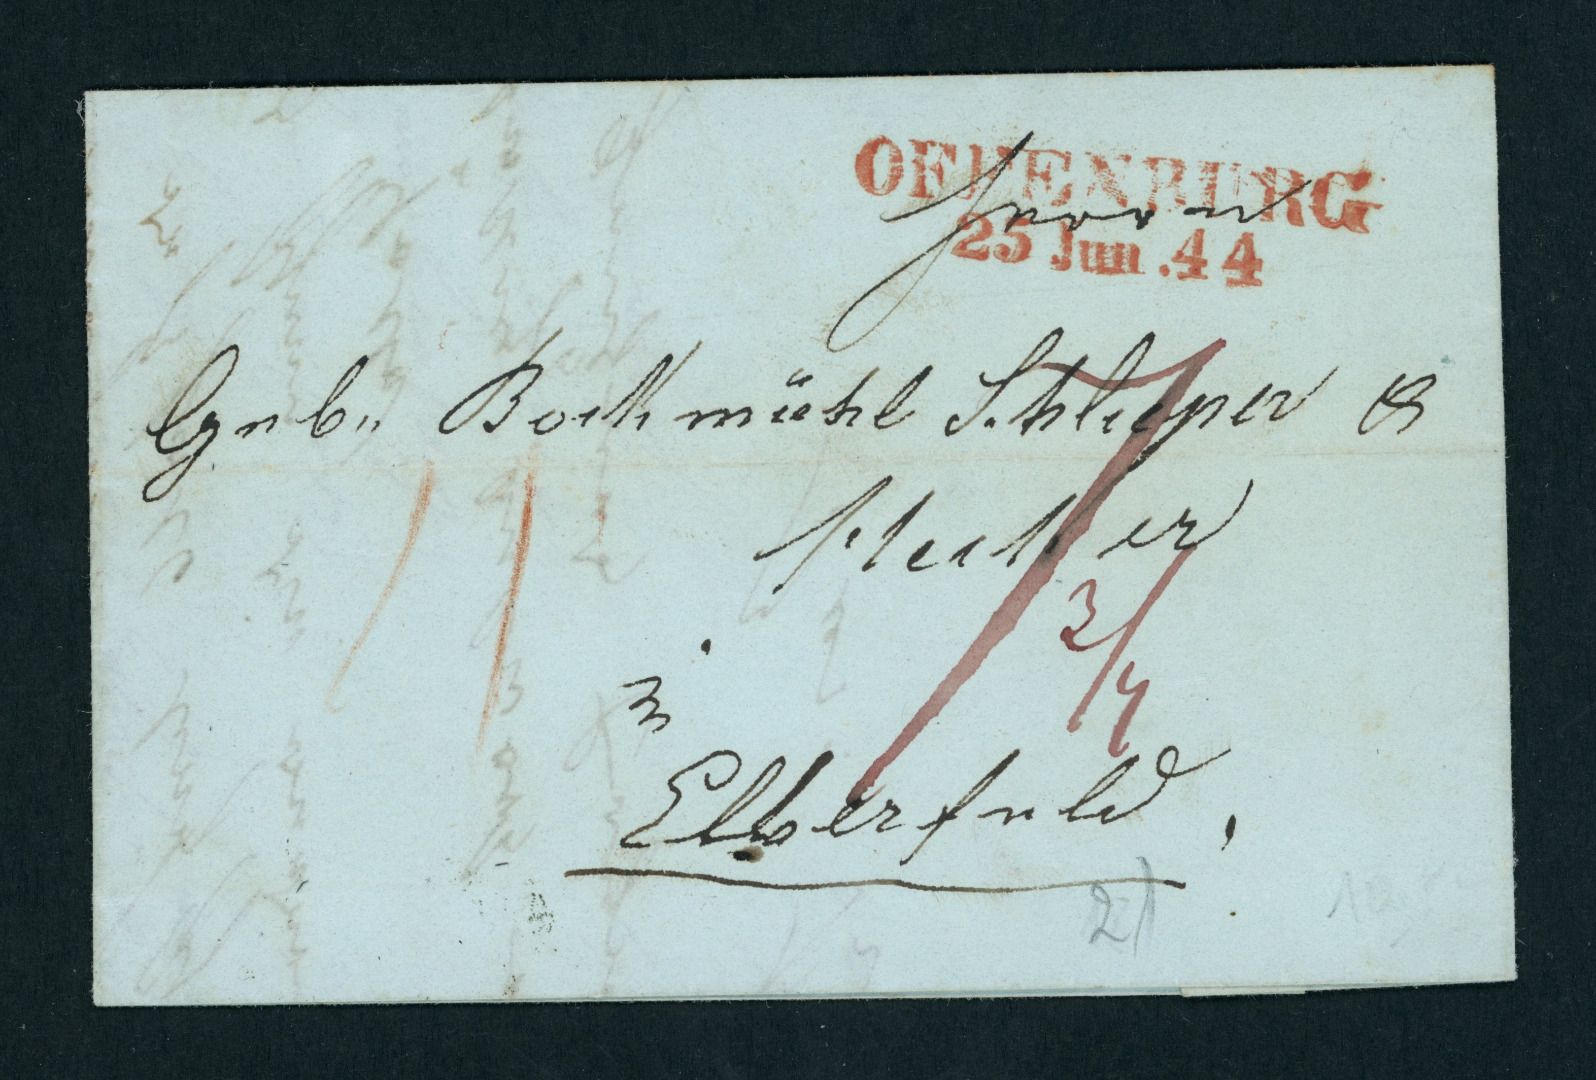 OFFENBURG
25 Jun. 44
Herrn
Gebr. Bockmühl Schlieper &
Hecker
in
Elberfeld.
3/4
21